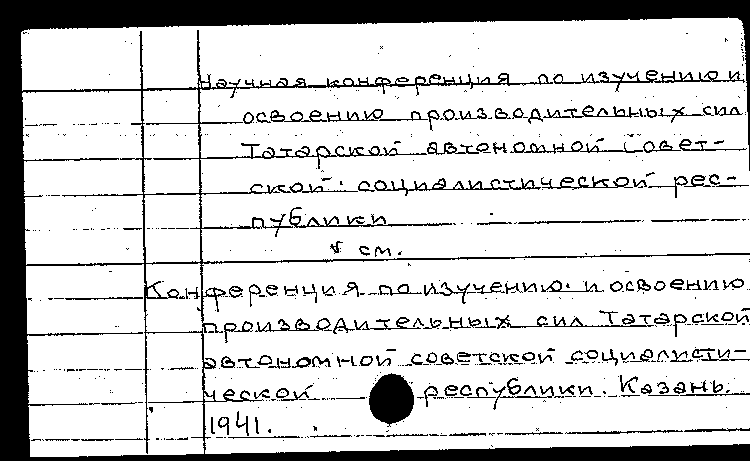 Научная конференция по изучению и
освоению производительных сил
Татарской автономной Совет-
ской социалистической рес-
публики
см.
Конференция по изучению и освоению
производительных сил Татарской
автономной советской социалисти-
ческой республики. Казань.
1941.